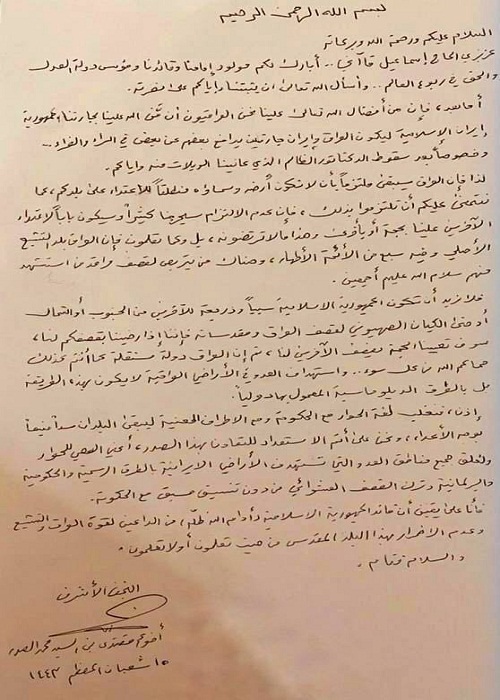 بسم الله الرحمن الرحيم
السلام عليكم ورحمة الله وبركاته
عزيزي الحاج إسماعيل قاآني.. أبارك لكم مولود إمامنا وقائدنا ومؤسس دولة العدل
والحق في ربوع العالم.. وأسأل الله تعالى أن يثبتنا وإياكم على نصرته.
أما بعد، فإن من أفضال الله تعالى علينا نحن العراقيون أن منّ الله علينا بجارتنا الجمهورية
إيران الإسلامية ليكون العراق وإيران جارتين يدافع بعضهم عن بعض في السراء والضراء..
وخصوصاً بعد سقوط الدكتاتور الظالم الذي عانينا الويلات منه وإياكم.
لذا فإن العراق سيبقى ملتزماً بأن لا تكون أرضه وسماؤه منطلقاً للاعتداء على بلدكم، كما
نتمنى عليكم أن تلتزموا بذلك، فإن عدم الالتزام سيحرجنا كثيراً وسيكون باباً لاعتداء
الآخرين علينا بحجة أو بأخرى وهذا ما لا ترتضونه، بل وكما تعلمون فإن العراق بلد التشيع
الأصلي وفيه سبع من الأئمة الأطهار، وهناك من يتربص لقصف مراقد من استشهد
منهم سلام الله عليهم أجمعين.
فلا نريد أن تكون الجمهورية الإسلامية سبباً وذريعة للآخرين من الجنوب أو الشمال
أو حتى الكيان الصهيوني لقصف العراق ومقدساته فإننا إذا رضينا بقصفكم لنا،
سوف تعيينا الحجة بقصف الآخرين لنا، ثم إن العراق دولة مستقلة كما أنتم كذلك
حماكم الله من كل سوء.. واستهداف العدو في الأراضي العراقية لا يكون بهذه الطريقة
بل بالطرق الدبلوماسية المعمول بها دولياً.
إذن، فنغلب لغة الحوار مع الحكومة ومع الأطراف المعنية ليبقى البلدان سداً منيعاً
بوجه الأعداء، ونحن على أتم الاستعداد للتعاون بهذا الصدد، أعني السعي للحوار
ولغلق جميع مناطق العدو التي تستهدف الأراضي الإيرانية بالطرق الرسمية والحكومية
والبرلمانية وترك القصف العشوائي من دون تنسيق مسبق مع الحكومة.
فأنا على يقين أن قائد الجمهورية الإسلامية (دام الله ظله) من الداعين لقوة العراق والتشيع
وعدم الإضرار بهذا البلد المقدس من حيث تعلمون أو لا تعلمون.
والسلام ختام.
النجف الأشرف
أخوكم مقتدى بن السيد محمد الصدر
١٥ شعبان المعظم ١٤٤٣